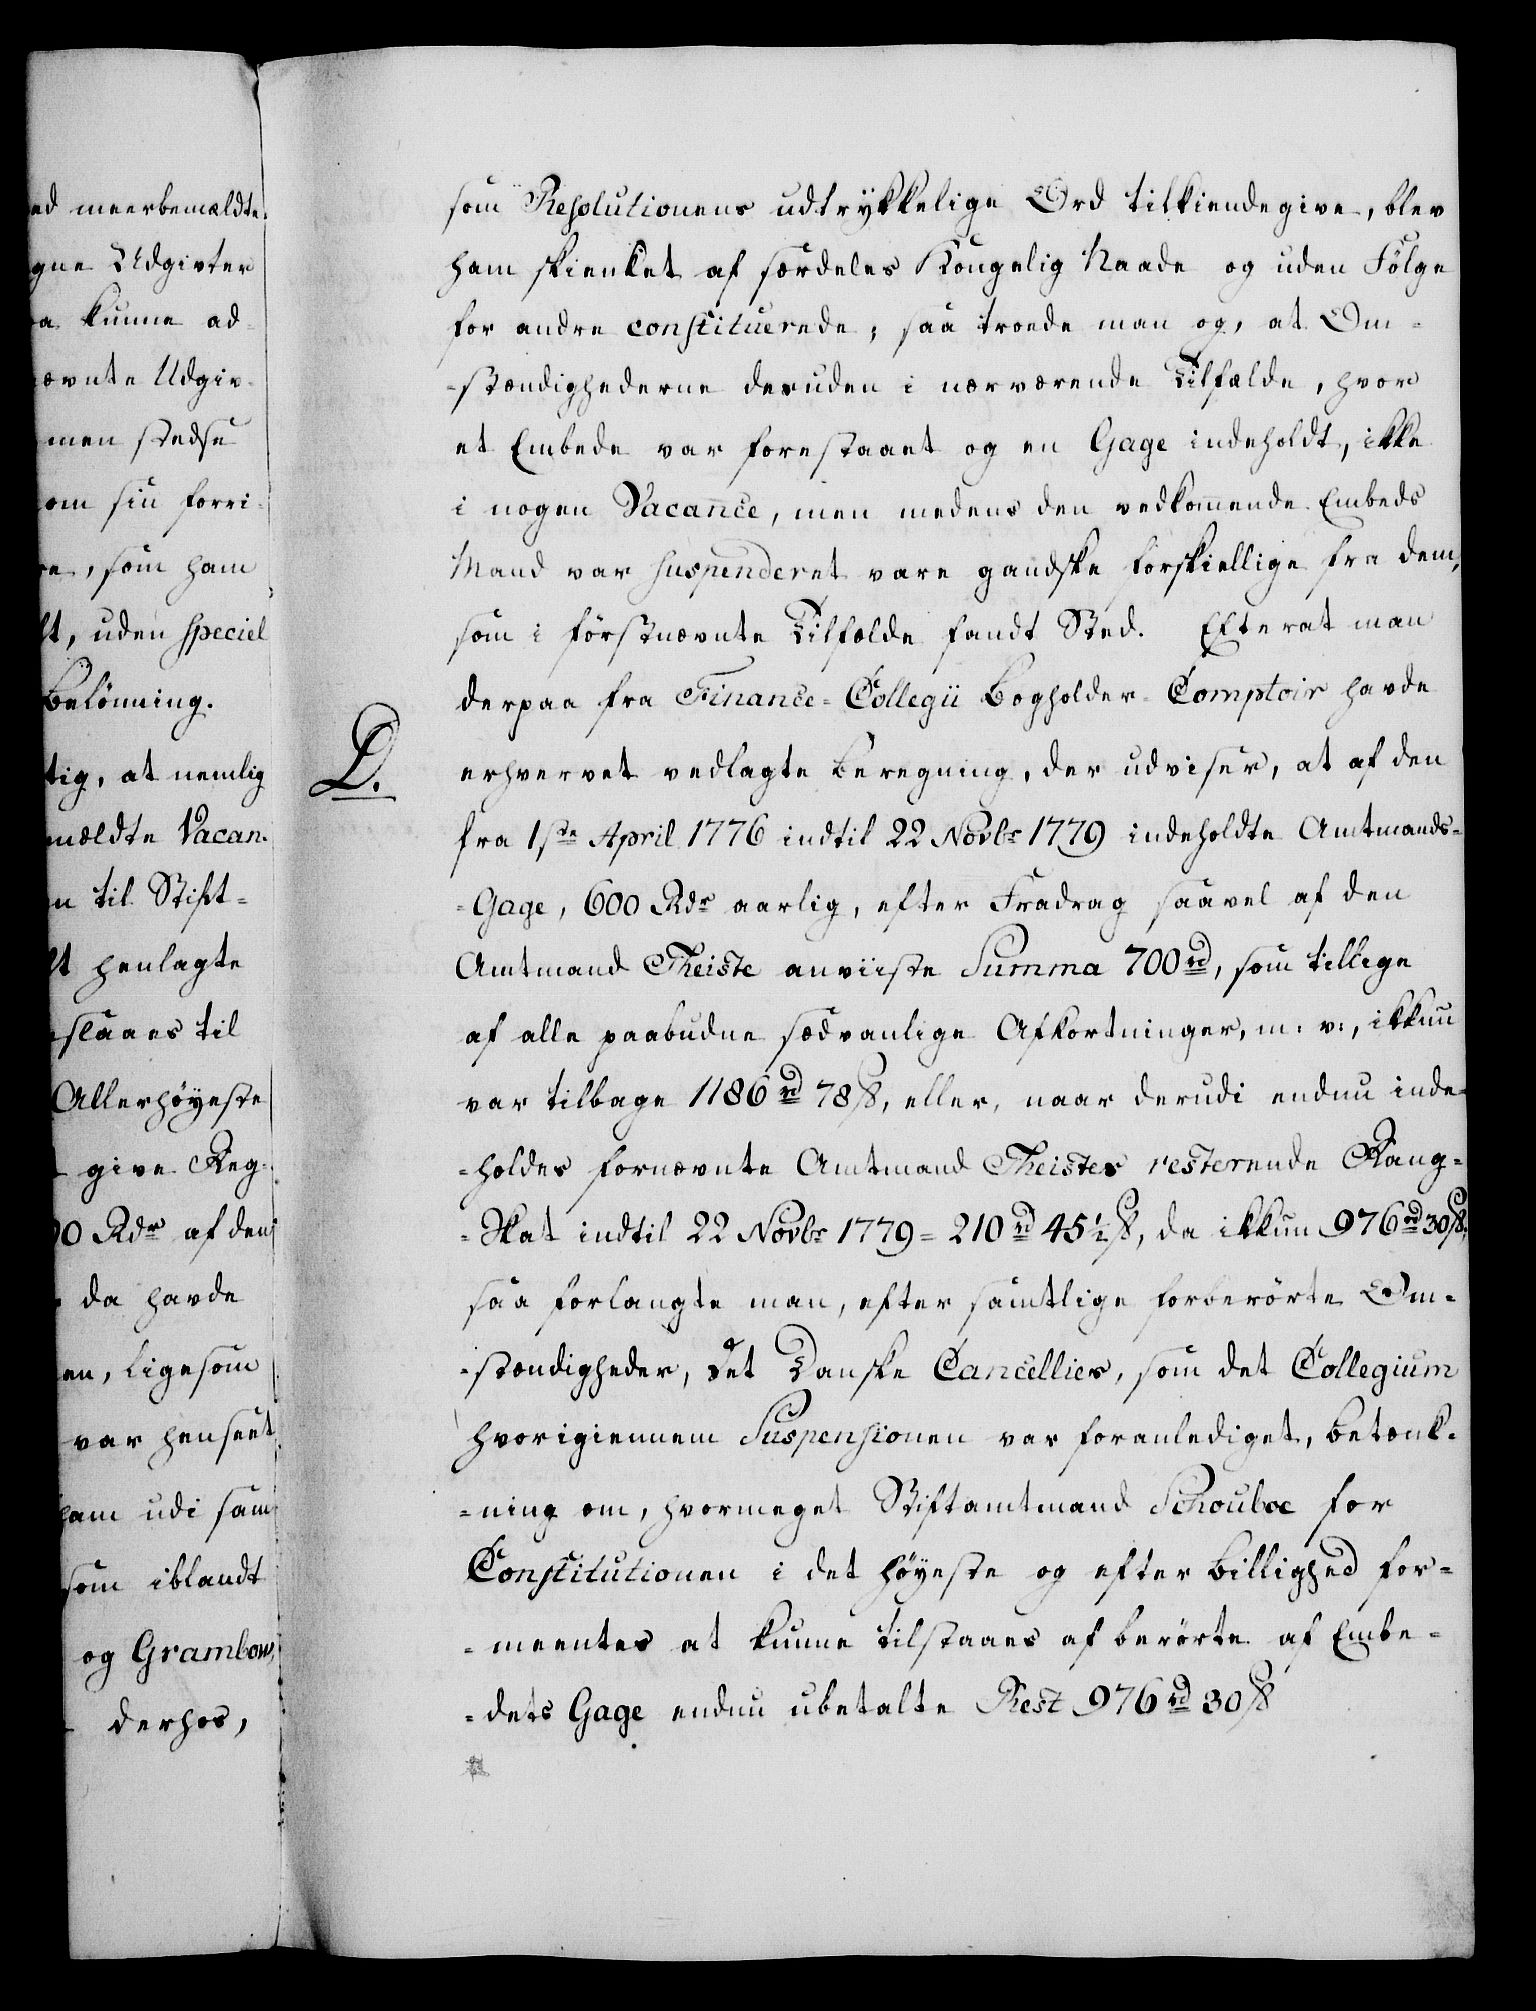 ed meerbemældte
gne Udgivter
a kunne ad-
ævnte Udgiv-
men stedse
om sin forri-
e, som ham
lt, uden speciel
Belönning.
tig, at nemlig
mældte Vacan-
n til Stift-
lt henlagte
slaaes til
Allerhöyeste
give Reg-
0 Rdr af den
da havde
en, ligesom
var henseet
ham udi sam
som iblandt
og Grambow,
derhos,
som Resolutionens udtrykkelige Ord tilkiendegive, blev
ham skienket af særdeles Kongelig Naade og uden Fölge
for andre constituerede; saa troede man og, at Om-
-stændighederne desuden i nærværende Tilfælde, hvor
et Embede var forestaaet og en Gage indeholdt, ikke
i nogen Vacance, men medens den vedkommende Embeds
Mand var suspenderet vare gandske forskiellige fra dem,
som i förstnævnte Tilfælde fandt Sted. Efterat man
derpaa fra Finance-Collegii Bogholder-Comptoir havde
D.
erhvervet vedlagte Beregning, der udviser, at af den
fra 1ste April 1776 indtil 22 Novbr 1779 indeholdte Amtmands-
-Gage, 600 Rdr aarlig, efter Fradrag saavel af den
Amtmand Theiste anviiste Summa 700 rd, som tillige
af alle paabudne sædvanlige Afkortninger, m: v:, ikkun
var tilbage 1186 rd 78 ß, eller, naar derudi endnu inde-
-holdes fornævnte Amtmand Theistes resterende Rang-
-Skat indtil 22 Novbr 1779 = 210 rd 45½ ß, da ikkun 976 rd 30 ß,
saa forlangte man, efter samtlige forberörte Om-
-stændigheder, det Danske Cancellies, som det Collegium
hvorigiennem Suspensionen var foranlediget, Betænk-
-ning om, hvormeget Stiftamtmand Schouboe for
Constitutionen i det höyeste og efter Billighed for-
-meentes at kunne tilstaaes af berörte af Embe-
-dets Gage endnu ubetalte Rest 976 rd 30 ß